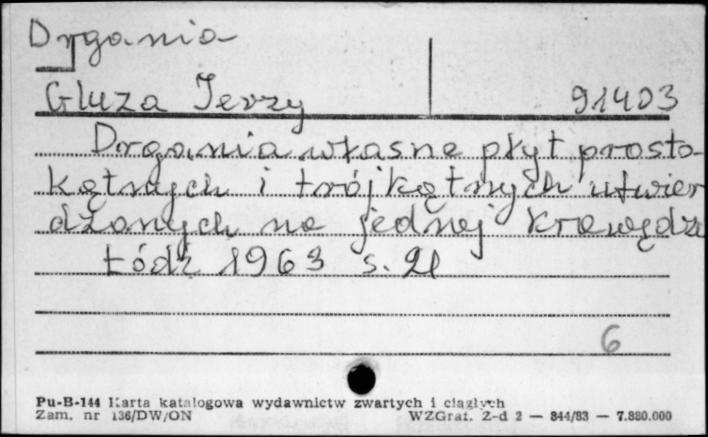 Drgania
Gluza Jerzy 91403
Drgania własne płyt prosto-
kątnych i trójkątnych utwier
dzonych na jednej krawędzi
Łódź 1963 s. 21
6
Pu-B-144 Karta katalogowa wydawnictw zwartych i ciągłych
Zam. nr 136/DW/ON WZGraf. Z-d 2 — 844/83 — 7.880.000